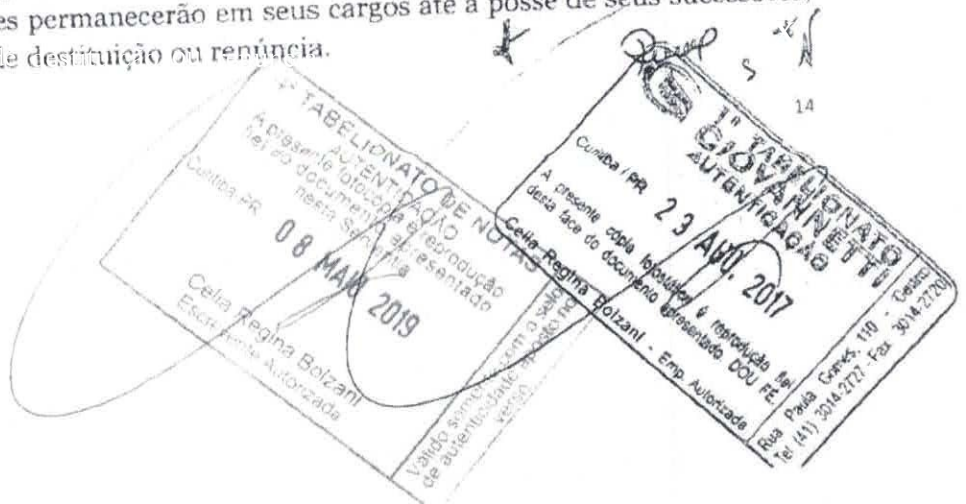 es permanecerão em seus cargos até a posse de seus sucessores,
de destituição ou renúncia.
14
1º TABELIONATO DE NOTAS
AUTENTICAÇÃO
A presente fotocópia é reprodução
fiel do documento apresentado
nesta Serventia
Curitiba-PR
08 MAIO 2019
Celia Regina Bolzani
Escrevente Autorizada
Válido somente com o selo
de autenticidade aposto no
verso
1º TABELIONATO
GIOVANNETTI
AUTENTICAÇÃO
Curitiba / PR
23 AGO. 2017
A presente cópia fotostática é reprodução fiel
desta face do documento apresentado. DOU FÉ.
Celia Regina Bolzani - Emp. Autorizada
Rua Paula Gomes, 110 - Centro
Tel (41) 3014-2727 - Fax 3014-2720